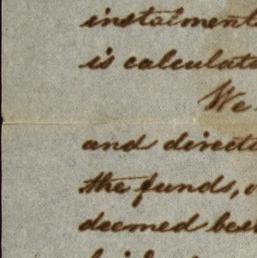 instalment
is calculate
We
and direct
the funds,
deemed best